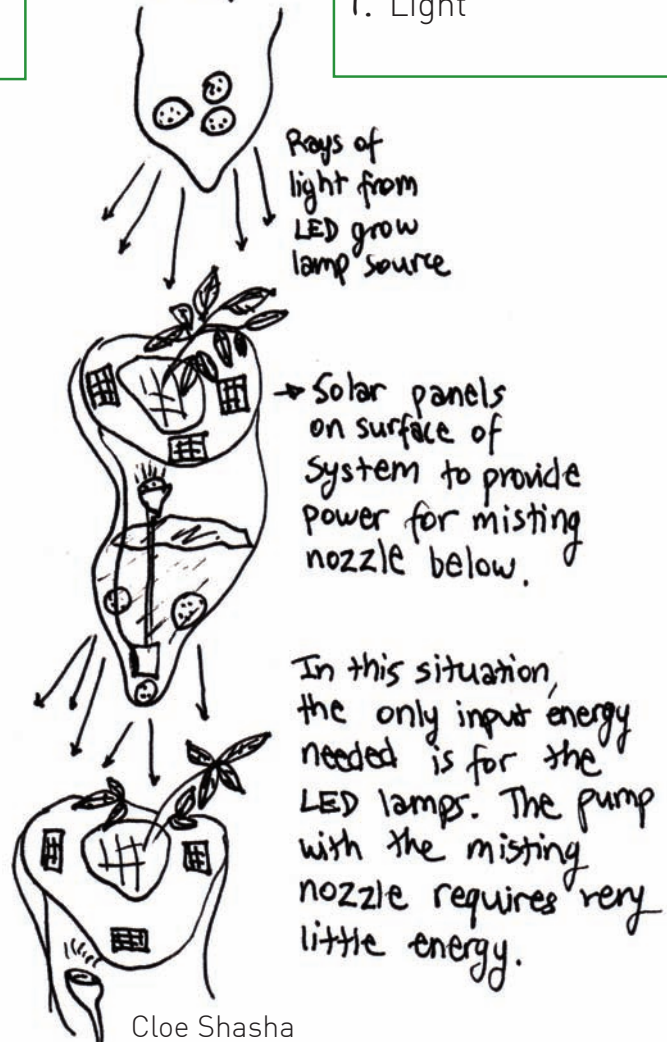 1. Light
Rays of
light from
LED grow
lamp source
Solar panels
on surface of
system to provide
power for misting
nozzle below.
In this situation,
the only input energy
needed is for the
LED lamps. The pump
with the misting
nozzle requires very
little energy.
Cloe Shasha